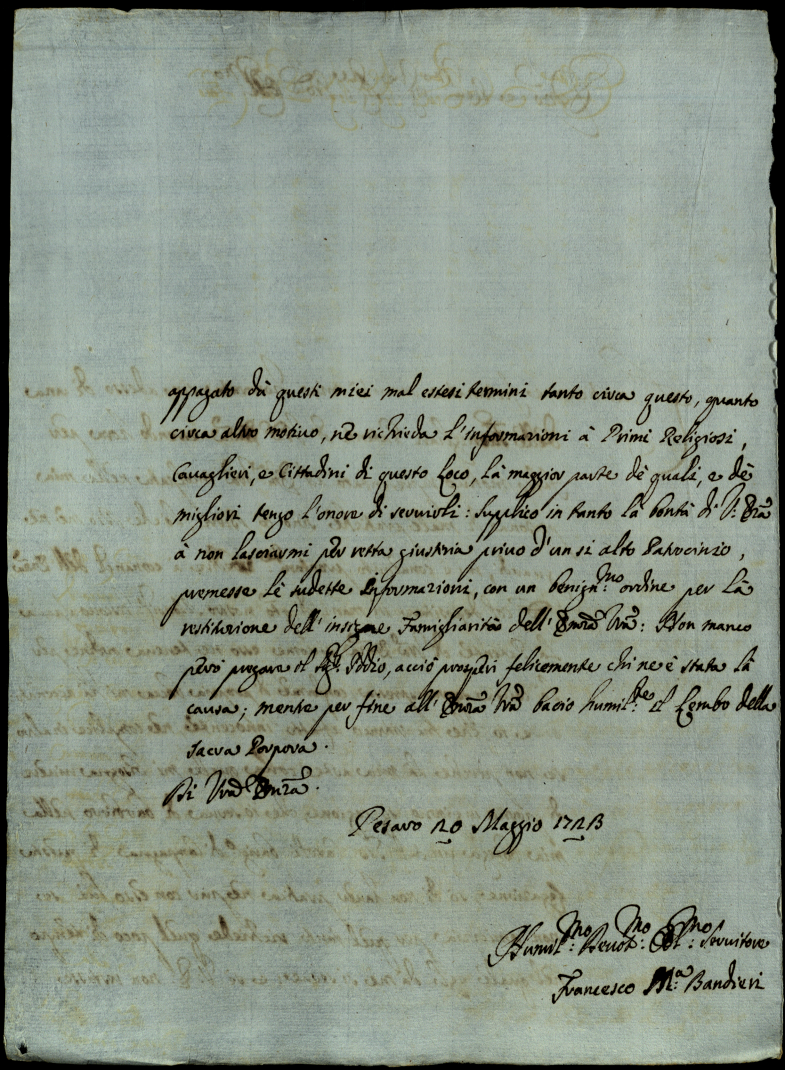 appagato dà questi miei mal estesi termini tanto circa questo, quanto
circa altro motivo, nè richieda l'informazioni à Primi Religiosi,
Cavaglieri, e Cittadini di questo Loco, là maggior parte dè quali, e dè
migliori tengo l'onore di servirli: supplico in tanto là bontà di V: Emã
à non lasciarmi pèr retta giustizia privo d'un si alto Patrocinio,
premesse lè sudette Informazioni, con un benign:mo ordine per là
restituzione dell'insigne Famigliarità dell' Emzã Vrã: Non manco
però pregare il Sig: Iddio, acciò prosperi felicemente chi ne è stata là
causa; mentre per fine all' Emzã Vrã bacio humil:te il Lembo della
sacra Porpora.
Di Vrã Emzã.
Pesaro 20 Maggio 1723
Humil:mo Devot:mo Obl:mo Servitore
Francesco M:a Bandieri